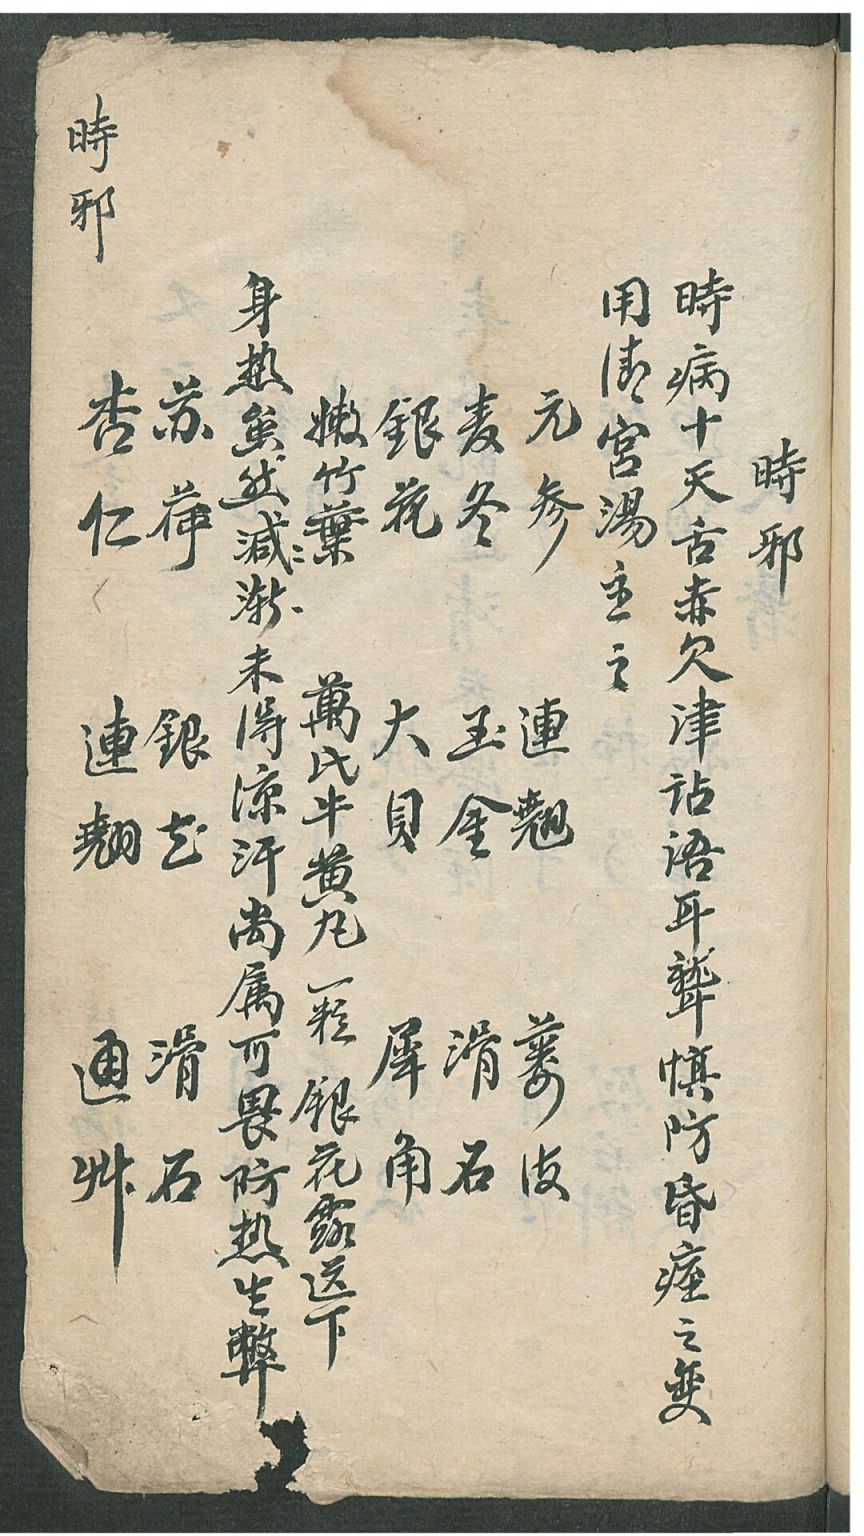 時邪
時病十天舌赤欠津訁占語耳聾慎防昏痙之变
用清宮湯主之
元参 連翹 蒌皮
麦冬 玉金 滑石
銀花 大貝 犀角
嫩竹葉 萬氏牛黄丸一粒 銀花露送下
身热虽然減漸未得凉汗尚属可畏防热生弊
苏荷 銀花 滑石
杏仁 連翹 通艸
時邪